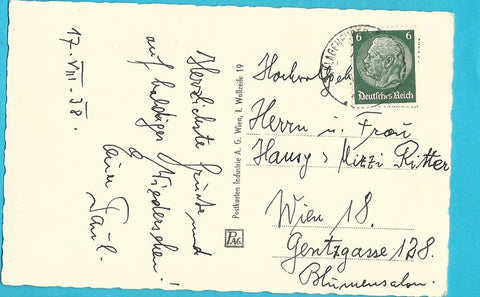 17. VIII. 38.
Herzlichste Grüsse und
auf baldiges Wiedersehen!
Euer Paul.
Postkarten Industrie A. G. Wien, I. Wollzeile 19
PAG
KLAGENFURT
6 6
Deutsches Reich
Herrn u. Frau
Hansy & Mizzi Ritter
Wien 18.
Gentzgasse 128.
Blumensalon.